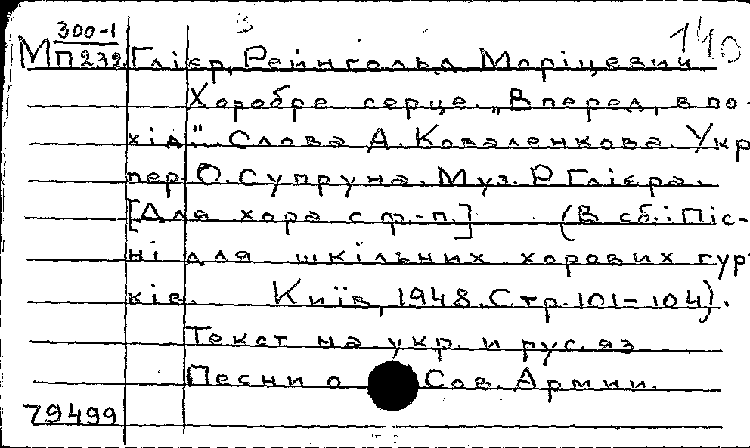 В
140
М 300-1
П 272
Глієр, Рейнгольд Моріцевич
Хоробре серце. „Вперед, в по-
хід". Слова А. Коваленкова. Укр
пер. О. Супруна. Муз. Р. Глієра.
[Для хора с ф.-п.] (В сб.: Піс-
ні для шкільних хорових гурт
ків. Київ, 1948. Стр. 101-104).
Текст на укр. и рус. яз
Песни о Сов. Армии.
79499